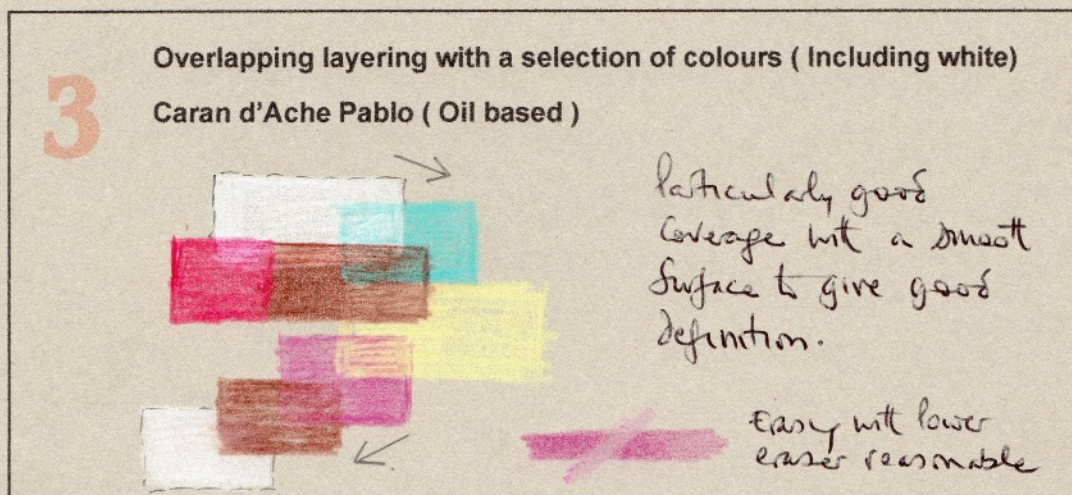 3
Overlapping layering with a selection of colours ( Including white)
Caran d'Ache Pablo ( Oil based )
Particularly good
coverage with a smooth
surface to give good
definition.
with lower
eraser reasonable